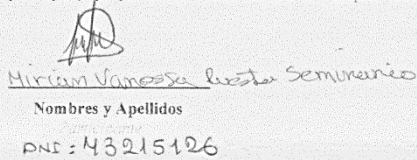 Mirian Vanessa Cuesta Seminario
Nombres y Apellidos
DNI: 43215126